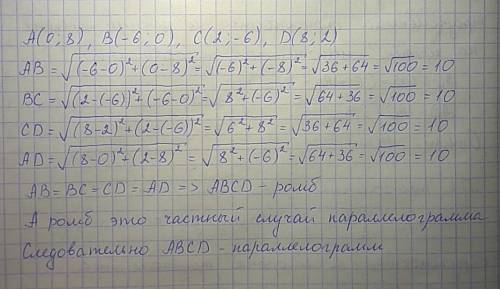 A(0;8), B(-6;0), C(2;-6), D(8;2)
AB=√((-6-0)²+(0-8)²)=√((-6)²+(-8)²)=√(36+64)=√100=10
BC=√((2-(-6))²+(-6-0)²)=√(8²+(-6)²)=√(64+36)=√100=10
CD=√((8-2)²+(2-(-6))²)=√(6²+8²)=√(36+64)=√100=10
AD=√((8-0)²+(2-8)²)=√(8²+(-6)²)=√(64+36)=√100=10
AB=BC=CD=AD => ABCD-ромб
А ромб это частный случай параллелограмма
Следовательно ABCD-параллелограмм